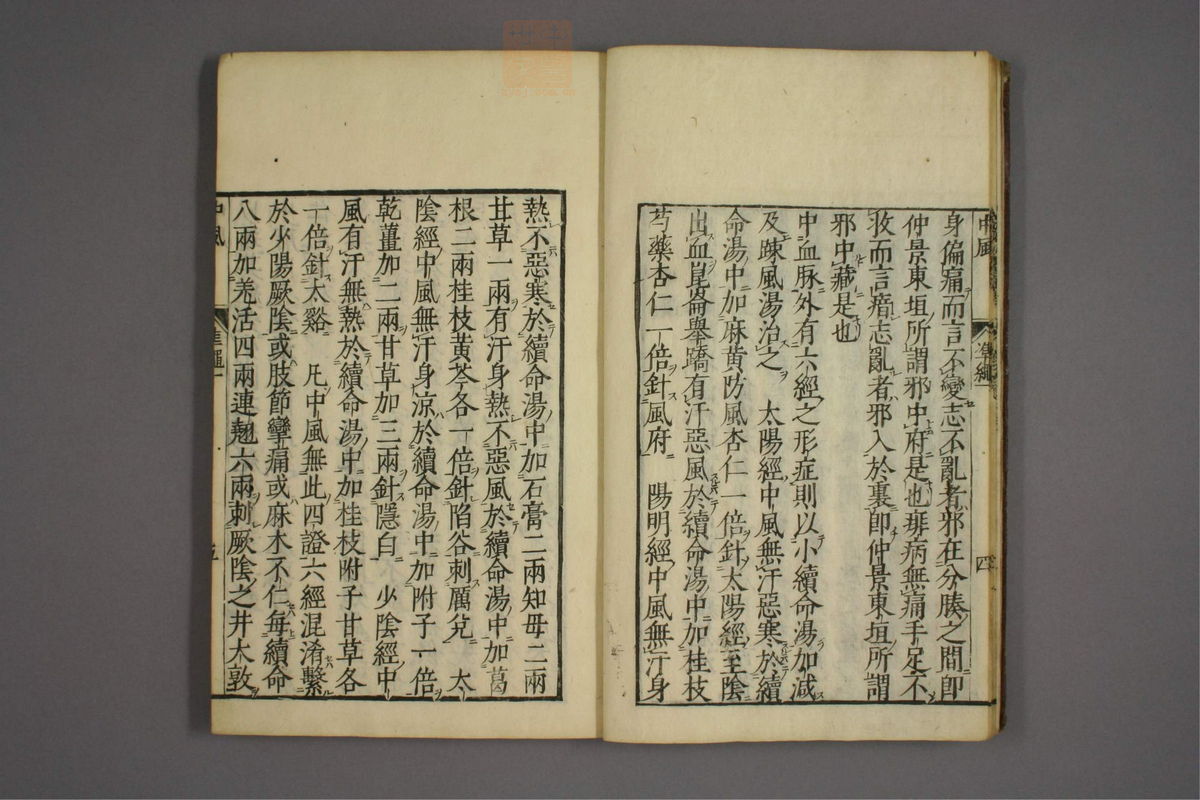 中風　準繩　四
身偏痛而言不變志不亂者邪在分腠之間卽
仲景東垣所謂邪中府是也痱病無痛手足不
收而言瘖志亂者邪入於裏卽仲景東垣所謂
邪中藏是也
中血脉外有六經之形症則以小續命湯加減
及踈風湯治之　太陽經中風無汗惡寒於續
命湯中加麻黃防風杏仁一倍針太陽經至陰
出血崑崙舉蹻有汗惡風於續命湯中加桂枝
芍藥杏仁一倍針風府　陽明經中風無汗身
熱不惡寒於續命湯中加石膏二兩知母二兩
甘草一兩有汗身熱不惡風於續命湯中加葛
根二兩桂枝黃芩各一倍針陷谷刺厲兌　太
陰經中風無汗身涼於續命湯中加附子一倍
乾薑加二兩甘草加三兩針隱白　少陰經中
風有汗無熱於續命湯中加桂枝附子甘草各
一倍針太谿　凡中風無此四證六經混淆繫
於少陽厥陰或肢節攣痛或麻木不仁每續命
八兩加羌活四兩連翹六兩刺厥陰之井大敦
中風　準繩一　五